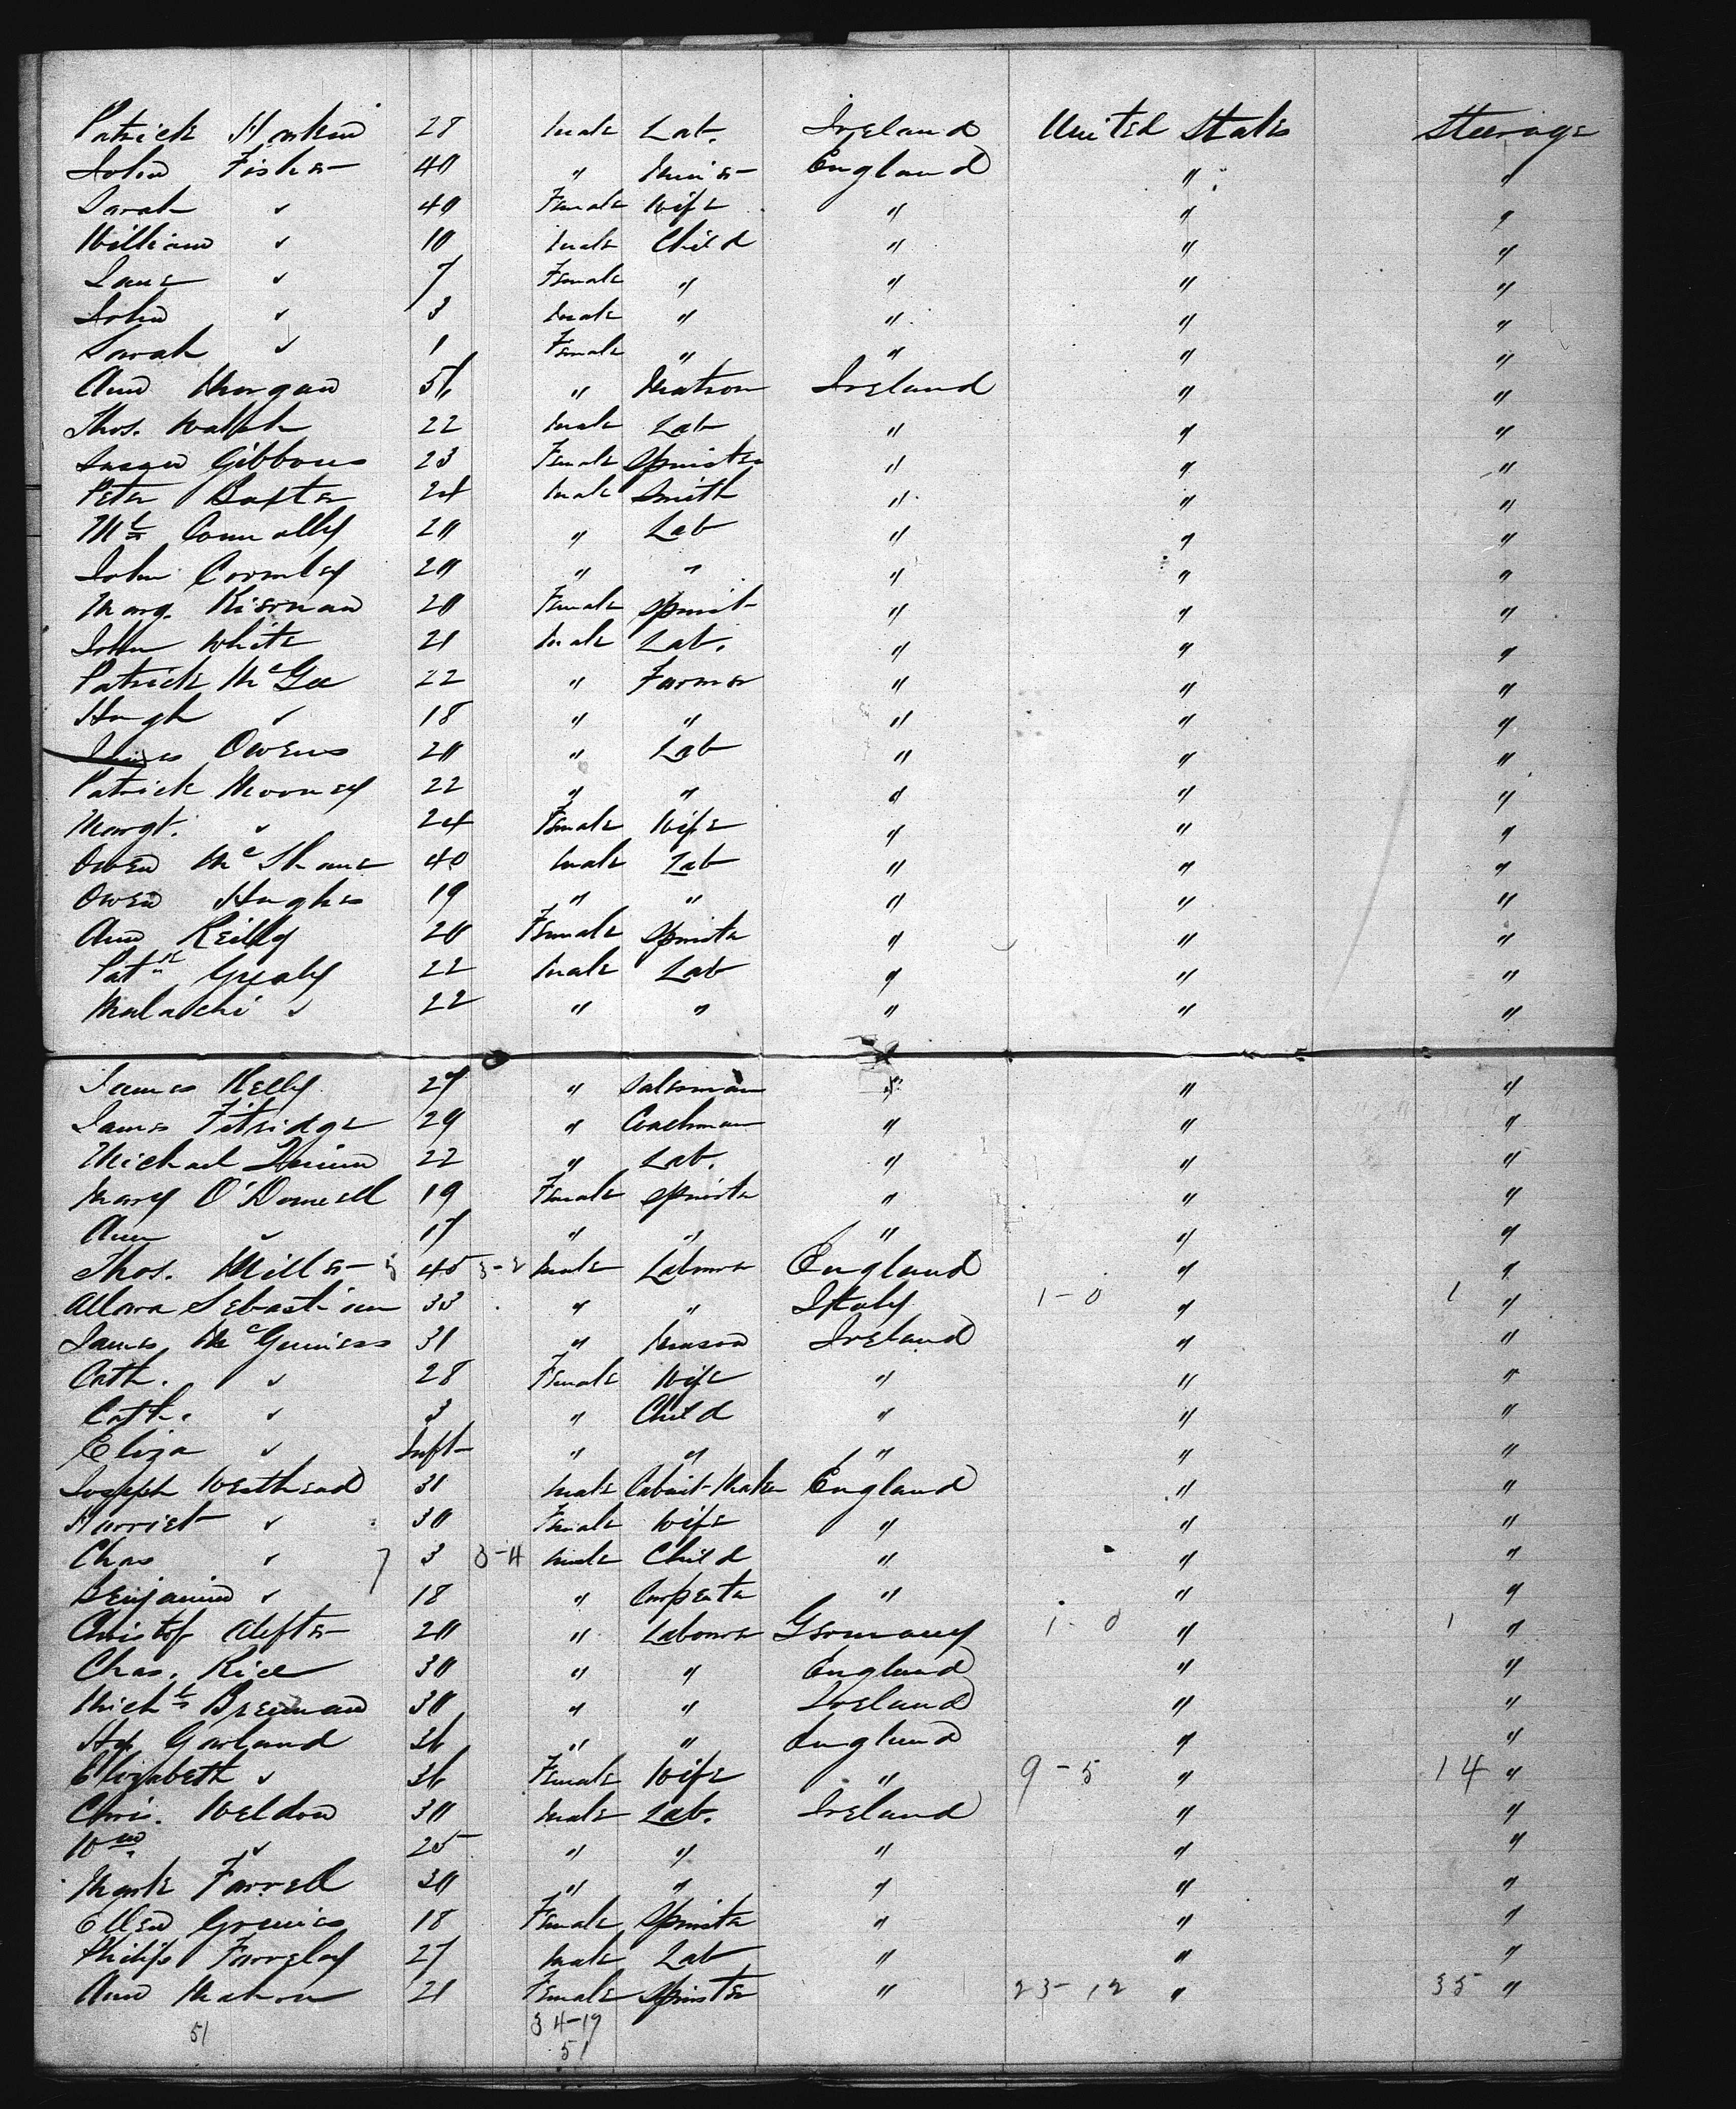 Patrick Harkin 28 Male Lab. Ireland United States Steerage
John Fisher 40 " Miner England " "
Sarah " 40 Female Wife " " "
William " 10 Male Child " " "
Jane " 7 Female " " " "
John " 3 Male " " " "
Sarah " 1 Female " " " "
Ann Morgan 56 " Matron Ireland " "
Thos. Walsh 22 Male Lab " " "
Susan Gibbons 23 Female Spinster " " "
Peter Baxter 24 Male Smith " " "
Ml Connolly 20 " Lab " " "
John Cormley 20 " " " " "
Marg. Kiernan 20 Female Spinst " " "
John White 21 Male Lab. " " "
Patrick McGee 22 " Farmer " " "
Hugh " 18 " " " " "
James Owens 20 " Lab " " "
Patrick Mooney 22 " " " " "
Margt. " 24 Female Wife " " "
Owen McShane 40 Male Lab " " "
Owen Hughes 19 " " " " "
Ann Reilly 20 Female Spinster " " "
Patk Grealy 22 Male Lab " " "
Malachi " 22 " " " " "
James Kelly 27 " Salesman " " "
James Fitridge 29 " Coachman " " "
Michael Quinn 22 " Lab. " " "
Mary O'Donnell 19 Female Spinster " " "
Ann " 17 " " " " "
Thos. Miller 5 45 3-2 Male Labourer England " "
Allora Sebastian 33 " " Italy 1-0 " 1 "
James McGuiness 31 " Mason Ireland " "
Cath. " 28 Female Wife " " "
Cath. " 3 " Child " " "
Eliza " Inft " " " " "
Joseph Westhead 31 Male Cabinet-Maker England " "
Harriet " 30 Female Wife " " "
Chas " 7 3 3-4 Male Child " " "
Benjamin " 18 " Carpenter " " "
Christof 20 " Labourer Germany 1-0 " 1 "
Chas. Rice 30 " " England " "
Michl Brennan 30 " " Ireland " "
Hy Garland 36 " " England " "
Elizabeth " 36 Female Wife " 9-5 " 14 "
Chris. Weldon 30 Male Lab. Ireland " "
Wm " 25 " " " " "
Mark Farrell 30 " " " " "
Ellen 18 Female Spinster " " "
Philip Farreley 27 Male Lab " " "
Ann Mahon 21 Female Spinster " 23-12 " 35 "
51 34-17
51